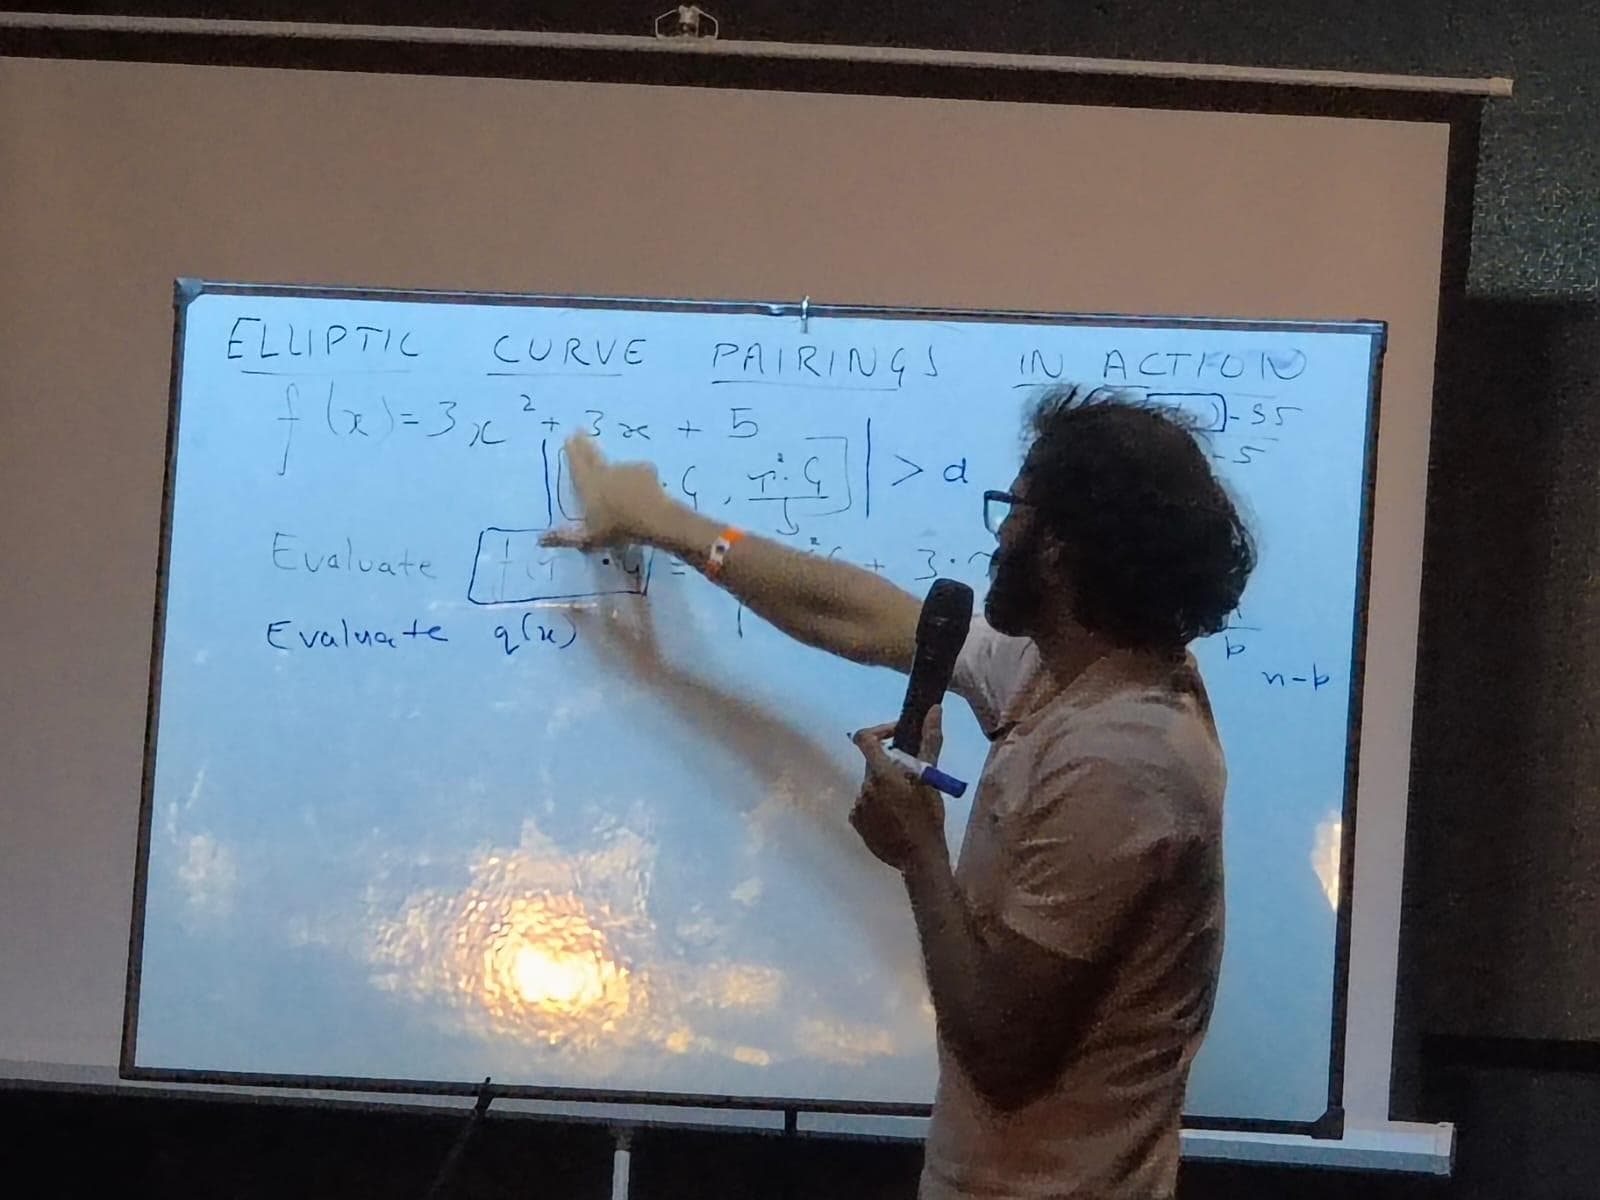 ELLIPTIC CURVE PAIRINGS IN ACTION
f(x)=3x²+3x+5
)-95
-5
·G, τ²·G | > d
Evaluate ·G = + 3·
Evaluate q(x)
b
n-b